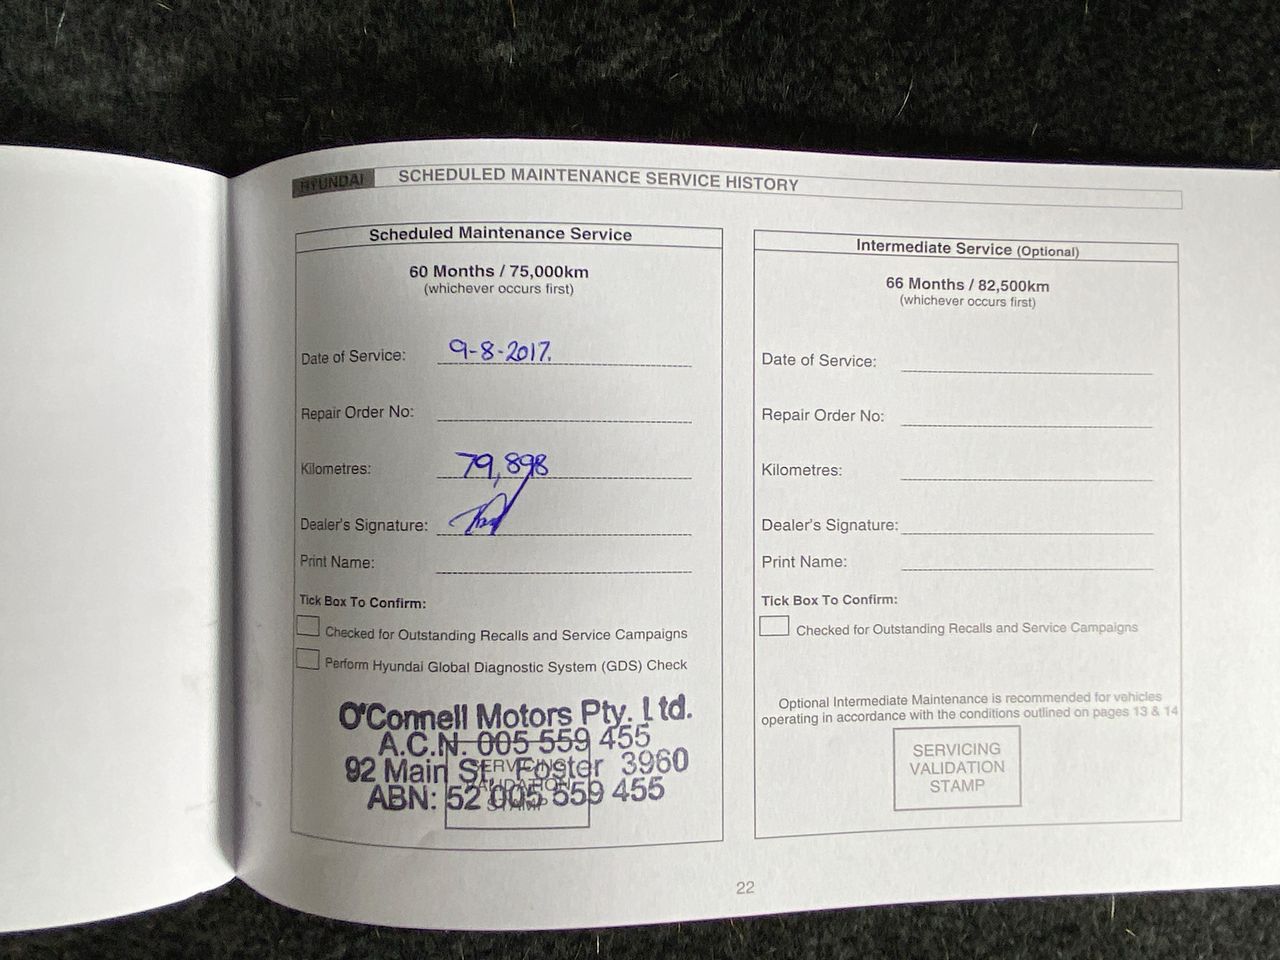 HYUNDAI SCHEDULED MAINTENANCE SERVICE HISTORY
Scheduled Maintenance Service
60 Months / 75,000km
(whichever occurs first)
Date of Service: 9-8-2017.
Repair Order No:
Kilometres: 79,898
Dealer's Signature:
Print Name:
Tick Box To Confirm:
Checked for Outstanding Recalls and Service Campaigns
Perform Hyundai Global Diagnostic System (GDS) Check
O'Connell Motors Pty. Ltd.
A.C.N. 005 559 455
92 Main St. Foster 3960
ABN: 52 005 559 455
SERVICING
VALIDATION
STAMP
Intermediate Service (Optional)
66 Months / 82,500km
(whichever occurs first)
Date of Service:
Repair Order No:
Kilometres:
Dealer's Signature:
Print Name:
Tick Box To Confirm:
Checked for Outstanding Recalls and Service Campaigns
Optional Intermediate Maintenance is recommended for vehicles
operating in accordance with the conditions outlined on pages 13 & 14
SERVICING
VALIDATION
STAMP
22